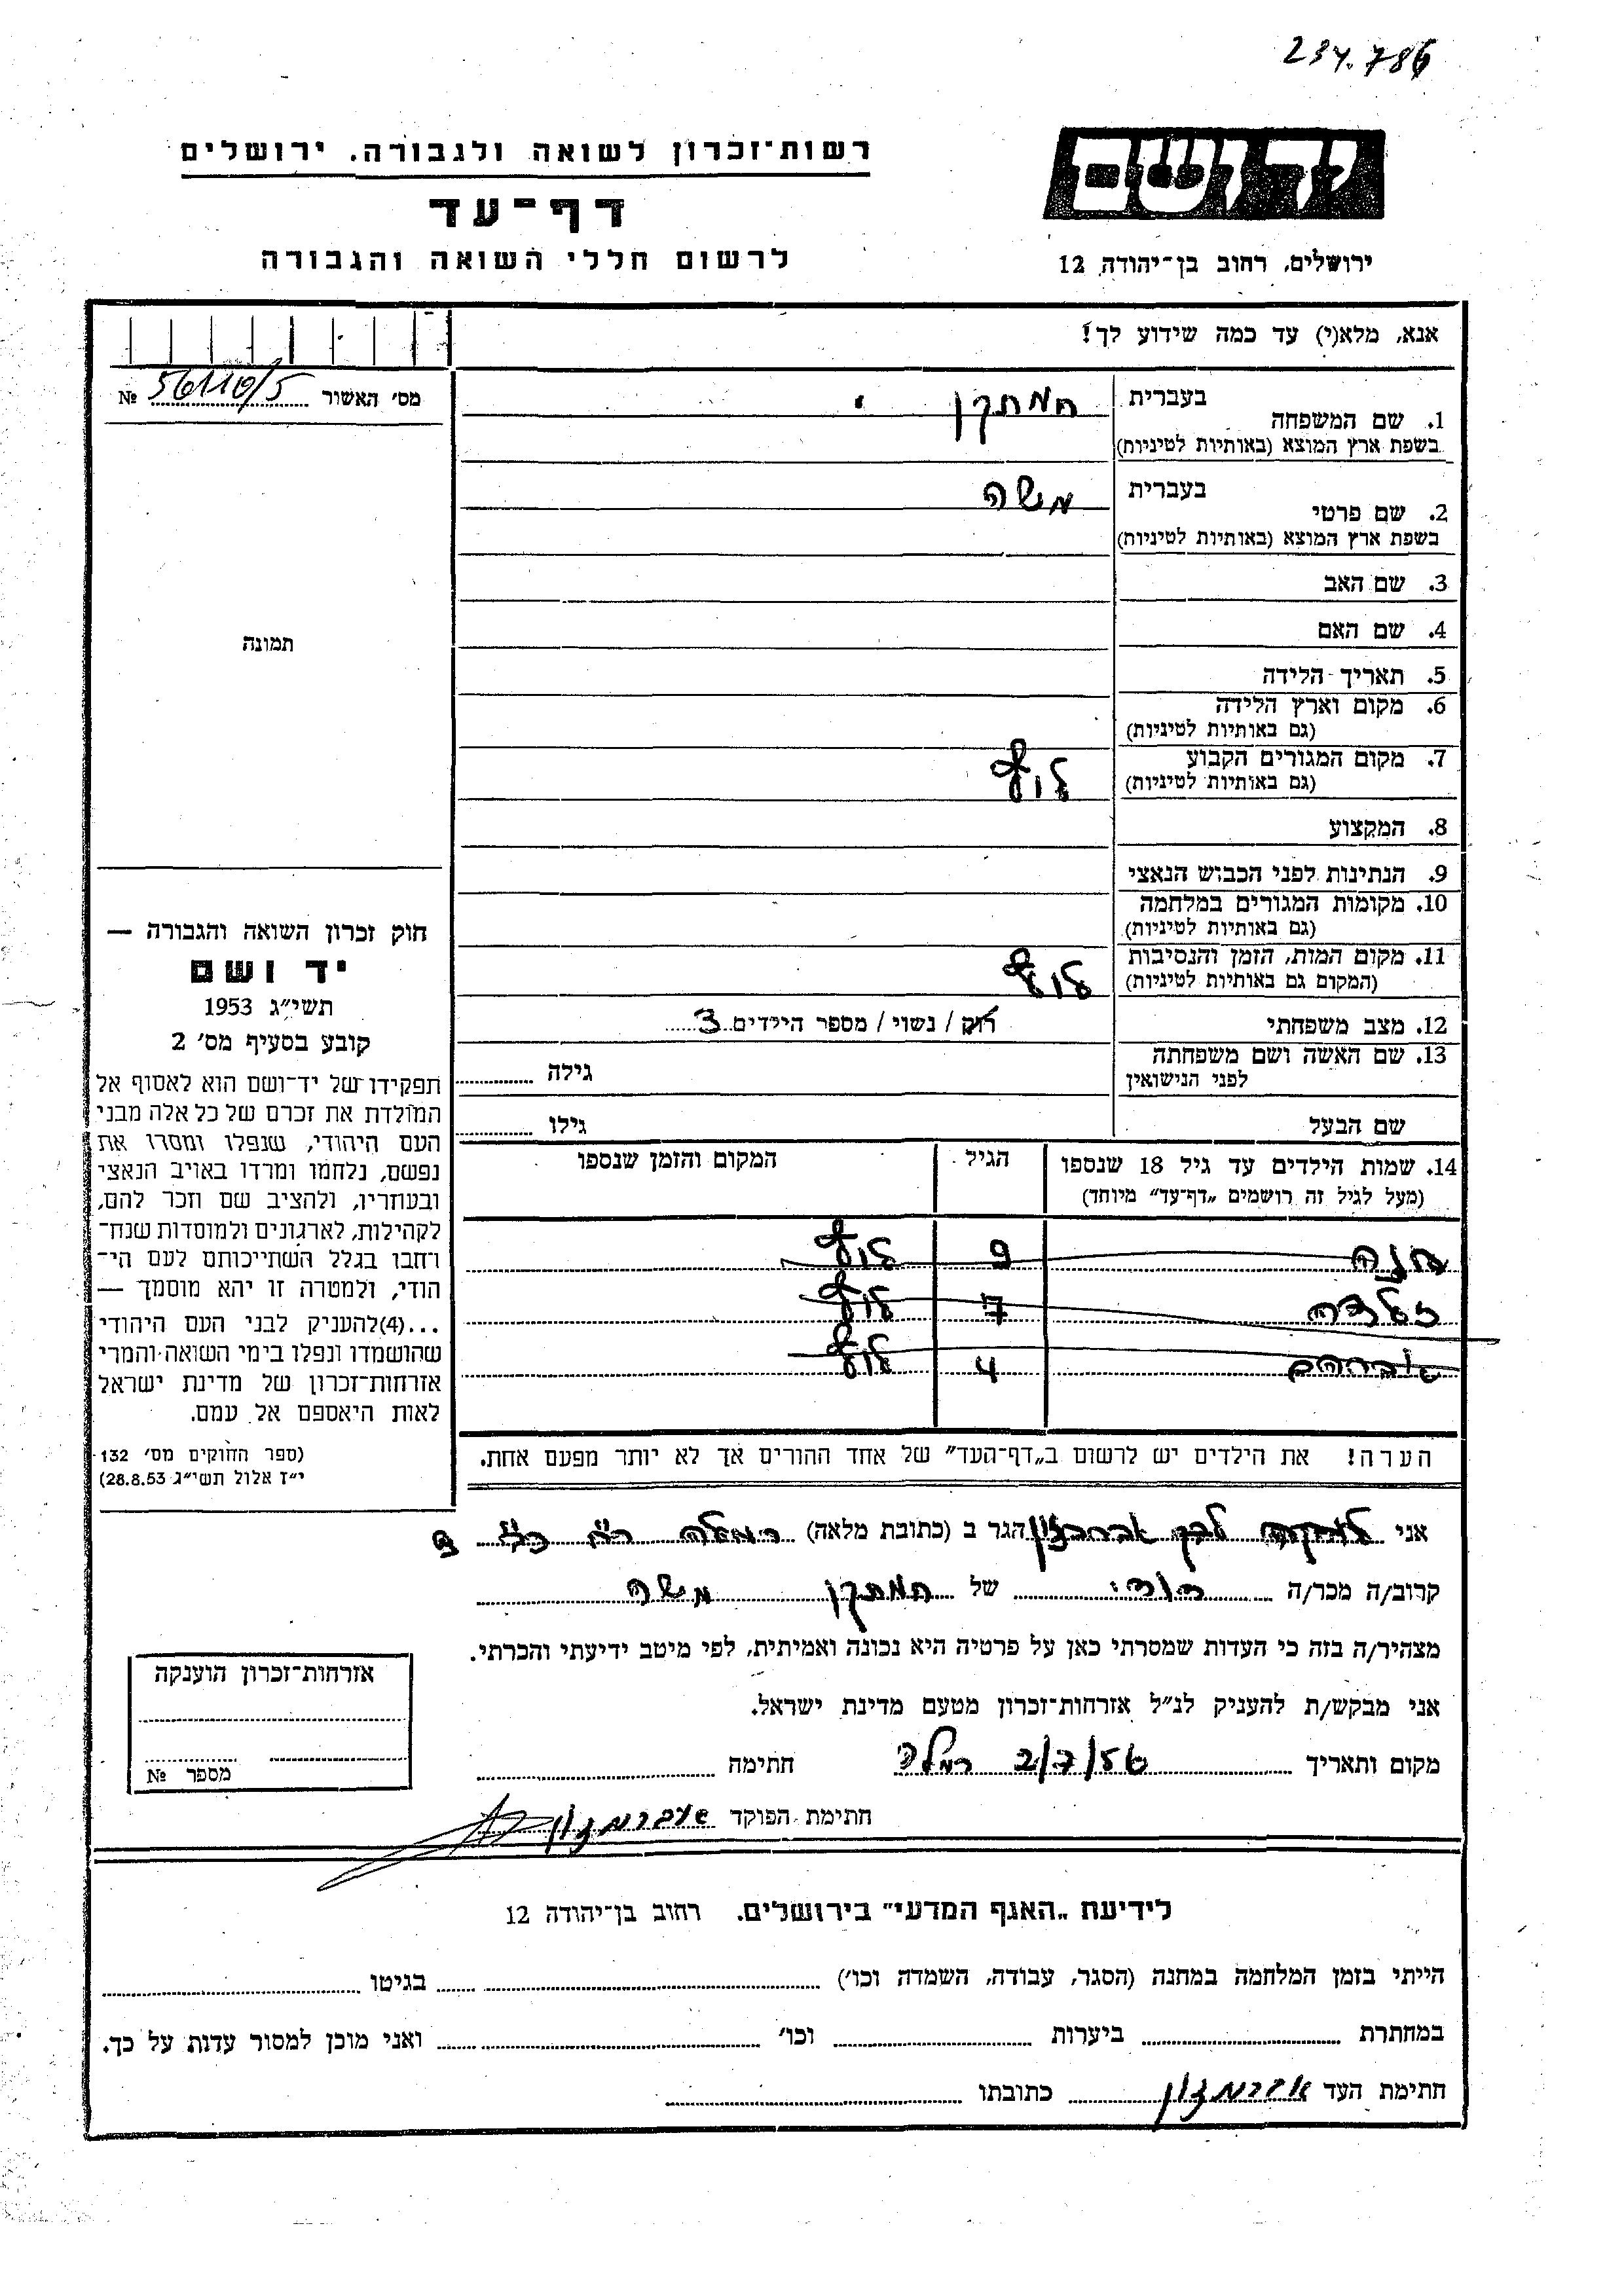 234.786
רשות־זכרון לשואה ולגבורה, ירושלים
ידושם
דף־עד
לרשום חללי השואה והגבורה
ירושלים, רחוב בן־יהודה 12
אנא, מלא(י) עד כמה שידוע לך!
מס׳ האשור 56110/5 №
בעברית
1. שם המשפחה
בשפת ארץ המוצא (באותיות לטיניות)
בעברית משה
2. שם פרטי
בשפת ארץ המוצא (באותיות לטיניות)
3. שם האב
4. שם האם
תמונה
5. תאריך הלידה
6. מקום וארץ הלידה
(גם באותיות לטיניות)
7. מקום המגורים הקבוע לודז׳
(גם באותיות לטיניות)
8. המקצוע
9. הנתינות לפני הכבוש הנאצי
10. מקומות המגורים במלחמה
(גם באותיות לטיניות)
11. מקום המות, הזמן והנסיבות
(המקום גם באותיות לטיניות)
12. מצב משפחתי רוק / נשוי / מספר הילדים 3
13. שם האשה ושם משפחתה גילה
לפני הנישואין
שם הבעל גילו
14. שמות הילדים עד גיל 18 שנספו הגיל המקום והזמן שנספו
(מעל לגיל זה רושמים „דף־עד״ מיוחד)
9
זלדה 7
אברהם 4
הערה! את הילדים יש לרשום ב„דף־העד״ של אחד ההורים אך לא יותר מפעם אחת.
חוק זכרון השואה והגבורה —
יד ושם
תשי״ג 1953
קובע בסעיף מס׳ 2
תפקידו של יד־ושם הוא לאסוף אל
המולדת את זכרם של כל אלה מבני
העם היהודי, שנפלו ומסרו את
נפשם, נלחמו ומרדו באויב הנאצי
ובעוזריו, ולהציב שם וזכר להם,
לקהילות, לארגונים ולמוסדות שנח־
רחבו בגלל השתייכותם לעם הי־
הודי, ולמטרה זו יהא מוסמך —
...(4)להעניק לבני העם היהודי
שהושמדו ונפלו בימי השואה והמרי
אזרחות־זכרון של מדינת ישראל
לאות היאספם אל עמם.
(ספר החוקים מס׳ 132
י״ז אלול תשי״ג 28.8.53)
אני הגר ב (כתובת מלאה) רמלה
קרוב/ה מכר/ה דודי של משה
מצהיר/ה בזה כי העדות שמסרתי כאן על פרטיה היא נכונה ואמיתית, לפי מיטב ידיעתי והכרתי.
אני מבקש/ת להעניק לנ״ל אזרחות־זכרון מטעם מדינת ישראל.
מקום ותאריך 2/7/56 רמלה חתימה
חתימת הפוקד אברמזון
אזרחות־זכרון הוענקה
מספר №
לידיעת „האגף המדעי״ בירושלים. רחוב בן־יהודה 12
הייתי בזמן המלחמה במחנה (הסגר, עבודה, השמדה וכו׳) בגיטו
במחתרת ביערות וכו׳ ואני מוכן למסור עדות על כך.
חתימת העד אברמזון כתובתו